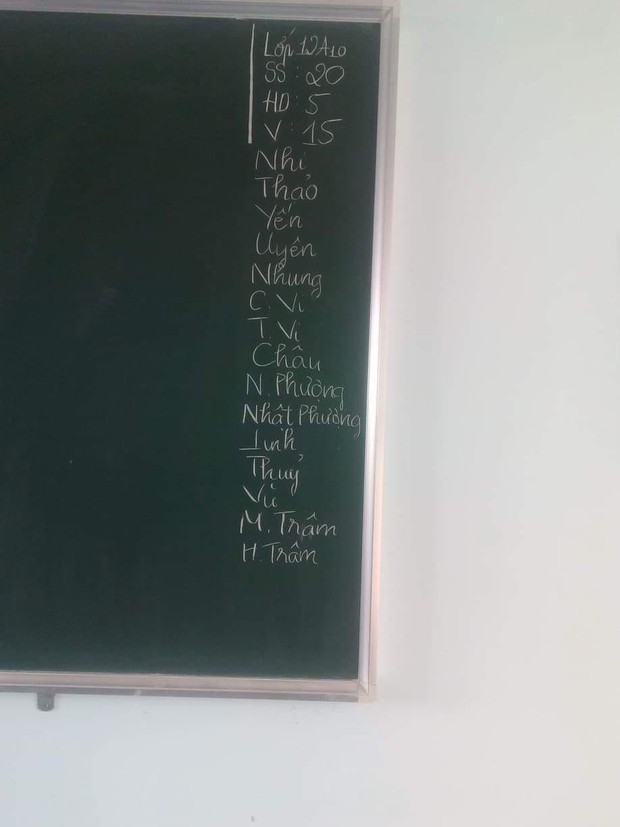 Lớp 12A10
SS: 20
HD: 5
V: 15
Nhi
Thảo
Yến
Uyên
Nhung
C. Vi
T. Vi
Châu
N. Phượng
Nhật Phượng
Thuỷ
M. Trâm
H. Trâm